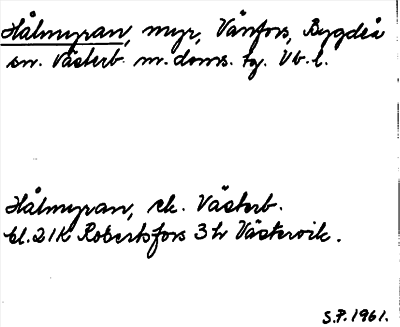 Hålmyran, myr, Vånfors, Bygdeå
sn. Västerb. m. doms. tg. Vb. l.
Hålmyran, ek. Västerb.
bl. 21K Robertsfors 3 h Västervik.
S.P. 1961.